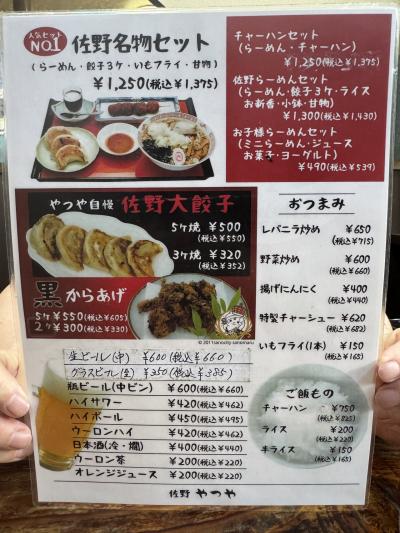 人気セット
NO.1
佐野名物セット
(らーめん・餃子3ケ・いもフライ・甘物)
¥1,250(税込¥1,375)
チャーハンセット
(らーめん・チャーハン)
¥1,250(税込¥1,375)
佐野らーめんセット
(らーめん・餃子3ケ・ライス
お新香・小鉢・甘物)
¥1,300(税込¥1,430)
お子様らーめんセット
(ミニらーめん・ジュース
お菓子・ヨーグルト)
¥490(税込¥539)
やつや自慢 佐野大餃子
5ケ焼 ¥500
(税込¥550)
3ケ焼 ¥320
(税込¥352)
黒からあげ
5ケ ¥550(税込¥605)
2ケ ¥300(税込¥330)
生ビール(中) ¥600(税込¥660)
グラスビール(生) ¥350(税込¥385)
瓶ビール(中ビン) ¥600(税込¥660)
ハイサワー ¥420(税込¥462)
ハイボール ¥450(税込¥495)
ウーロンハイ ¥420(税込¥462)
日本酒(冷・燗) ¥400(税込¥440)
ウーロン茶 ¥200(税込¥220)
オレンジジュース ¥200(税込¥220)
おつまみ
レバニラ炒め ¥650
(税込¥715)
野菜炒め ¥600
(税込¥660)
揚げにんにく ¥400
(税込¥440)
特製チャーシュー ¥620
(税込¥682)
いもフライ(1本) ¥150
(税込¥165)
ご飯もの
チャーハン ¥750
(税込¥825)
ライス ¥200
(税込¥220)
半ライス ¥150
(税込¥165)
佐野 やつや